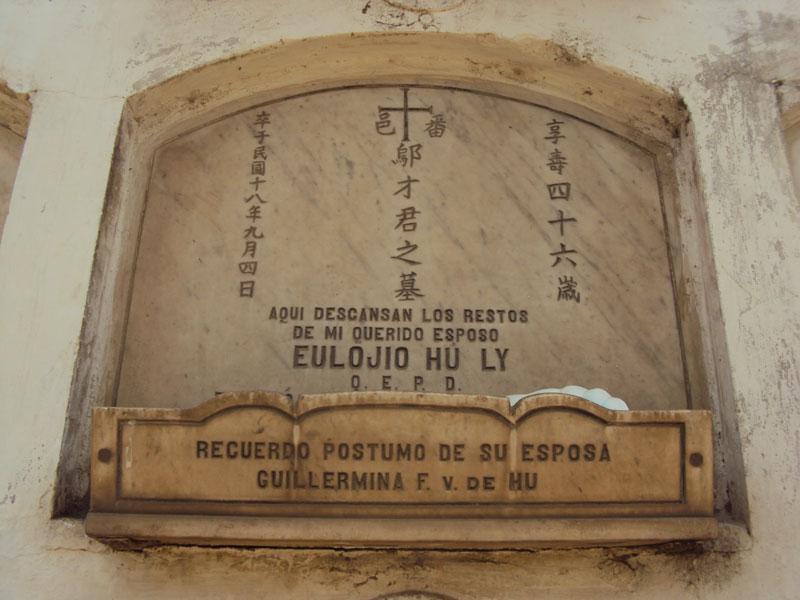 享壽四十六歲
番邑
鄔才君之墓
卒于民國十八年九月四日
AQUI DESCANSAN LOS RESTOS
DE MI QUERIDO ESPOSO
EULOJIO HU LY
Q. E. P. D.
RECUERDO POSTUMO DE SU ESPOSA
GUILLERMINA F. V. DE HU